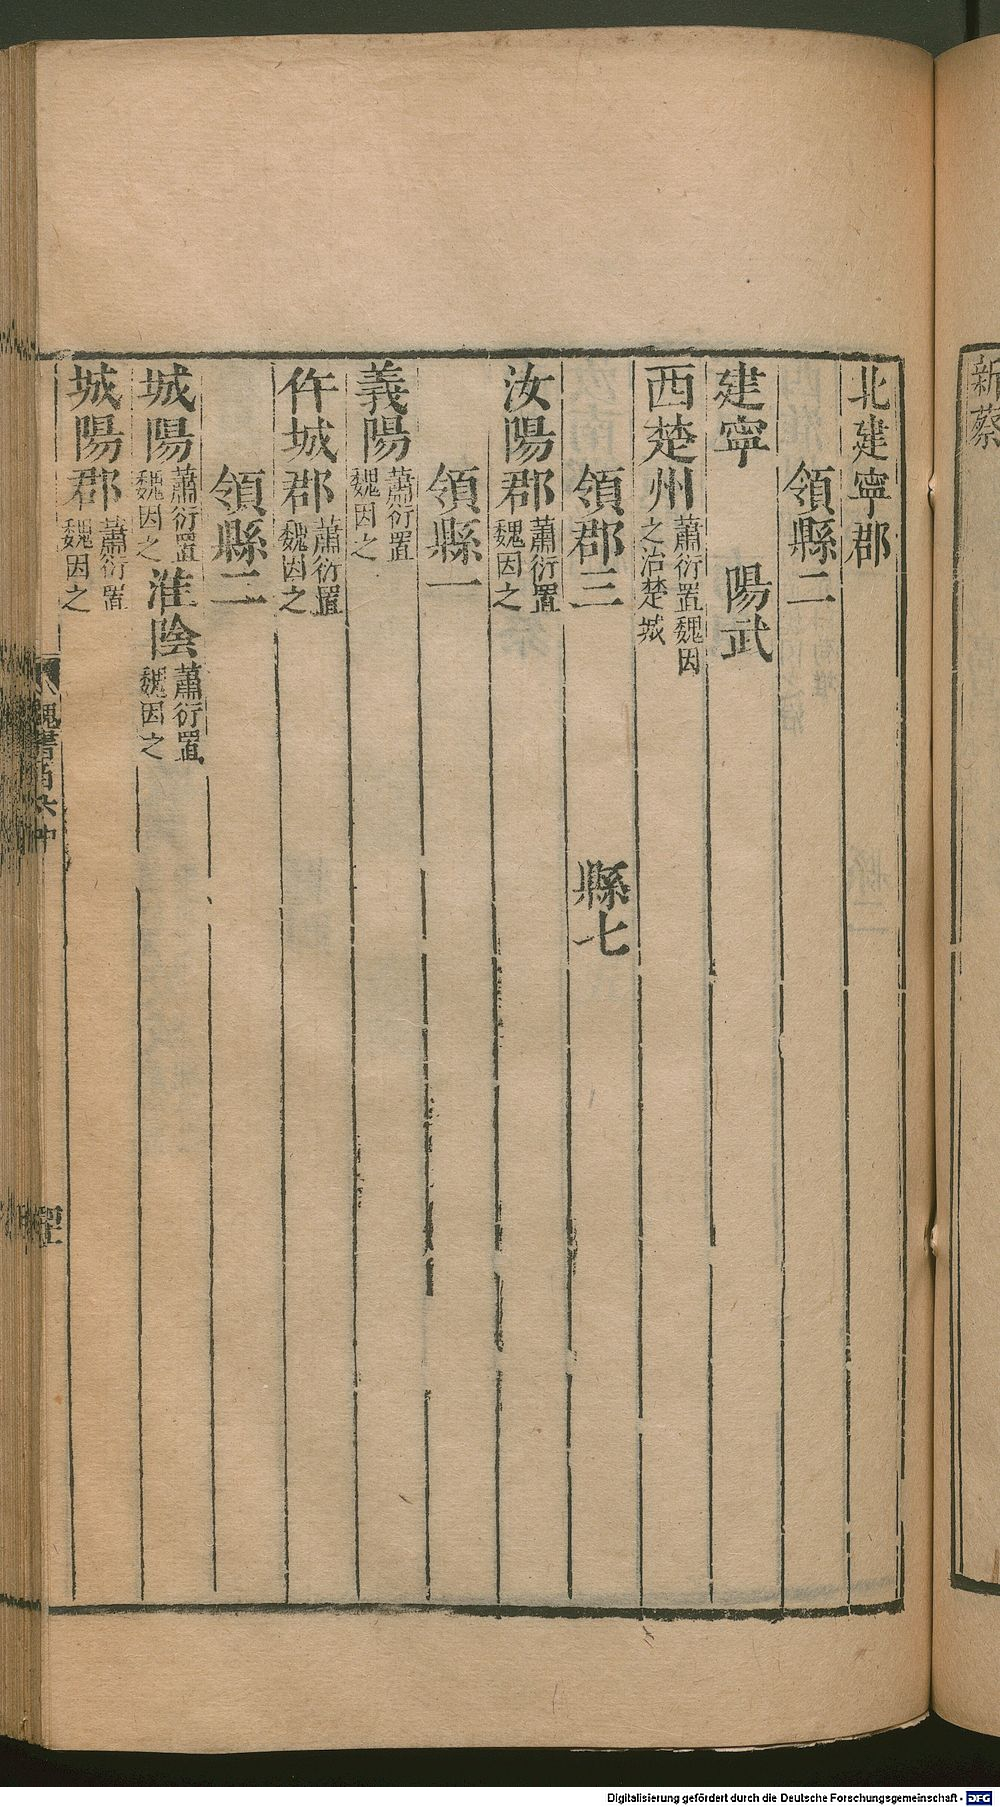 新蔡
北建寧郡
領縣二
建寧 陽武
西楚州蕭衍置魏因之治楚城
領郡三 縣七
汝陽郡蕭衍置魏因之
領縣一
義陽蕭衍置魏因之
仵城郡蕭衍置魏因之
領縣二
城陽蕭衍置魏因之淮陰蕭衍置魏因之
城陽郡蕭衍置魏因之
魏書百六中
Digitalisierung gefördert durch die Deutsche Forschungsgemeinschaft - DFG